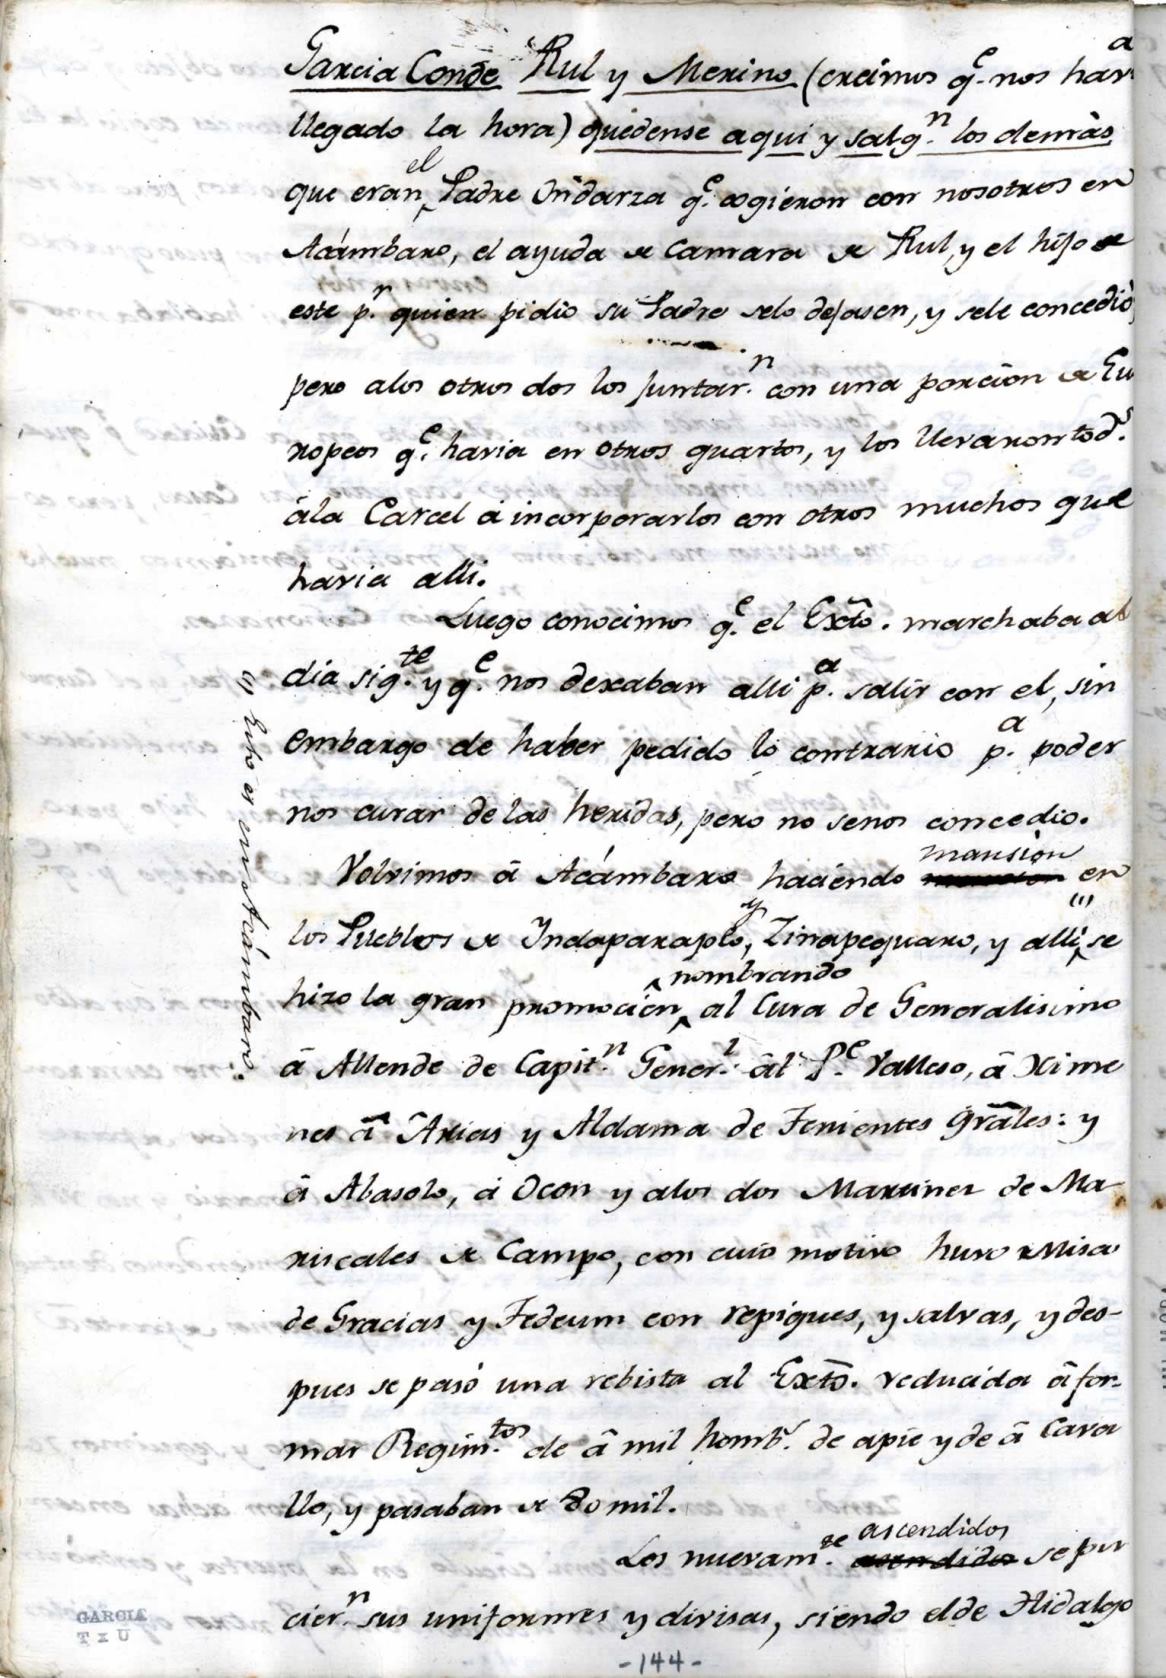 Garcia Conde Rul y Merino (creimos q.e nos havia
llegado la hora) quedense aqui y salg.n los demàs
que eran el Padre Ondarza q.e cogieron con nosotros en
Acámbaro, el ayuda de camara de Rul, y el hijo de
este p.r quien pidio su Padre selo dejasen, y sele concediò,
pero alos otros dos los juntar.n con una porcion de Eu
ropeos q.e havia en otros quartos, y los llevaron tod.s
âla Carcel á incorporarlos con otros muchos que
havia alli.
Luego conocimos q.e el Exto. marchaba al
dia sig.te y q.e nos dexaban alli p.a salir con el, sin
embargo de haber pedido lo contrario p.a poder
nos curar de las heridas, pero no senos concedio.
Volvimos â Acámbaro haciendo mansion en
los Pueblos de Yndaparapeo, y Zinapequaro, y alli (1) se
hizo la gran promocion nombrando al Cura de Generalisimo
â Allende de Capit.n Gener.l âl P.e Valleso, â Xime
nes â Arias y Aldama de Tenientes Grãles: y
â Abasolo, á Ocon y alos dos Martinez de Ma
riscales de Campo, con cuio motivo huvo Misa
de Gracias y Tedeum con repiques, y salvas, y des-
pues se pasó una rebista al Exto. reducida â for-
mar Regim.tos de â mil homb.s de apie y de â Cava
llo, y pasaban de 80 mil.
Los nuevam.te ascendidos se pu
cier.n sus uniformes y divisas, siendo elde Hidalgo
(1) Esto es en Acámbaro.
GARCIA
-144-